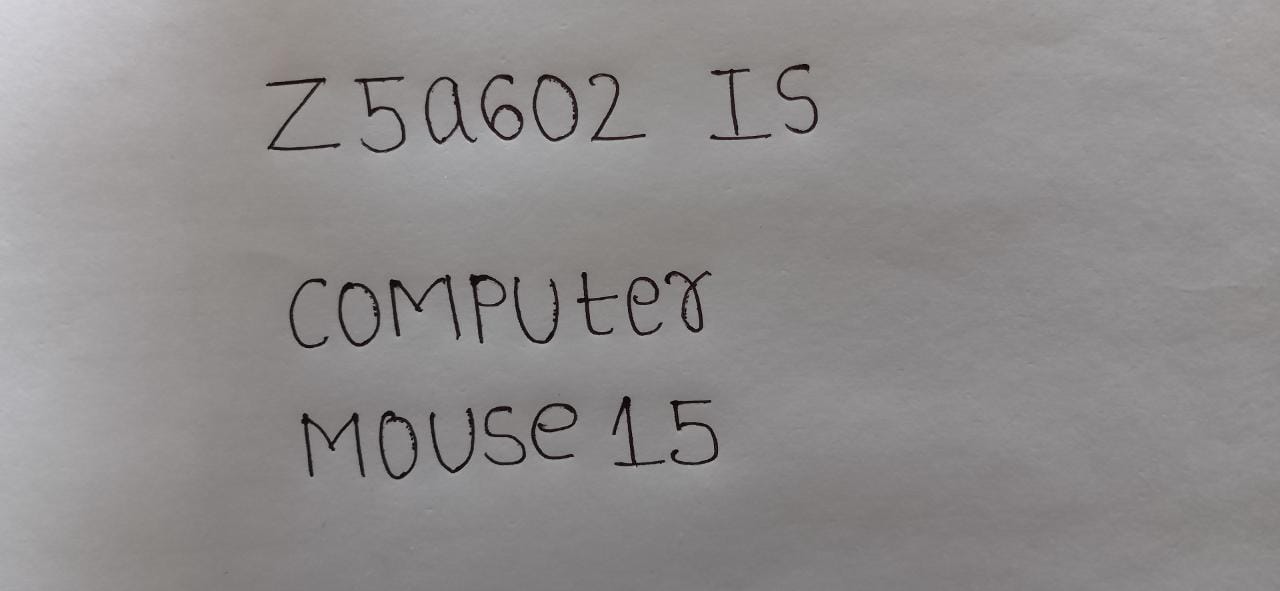 Z5a602 IS
COMPUter
MOUSe 15